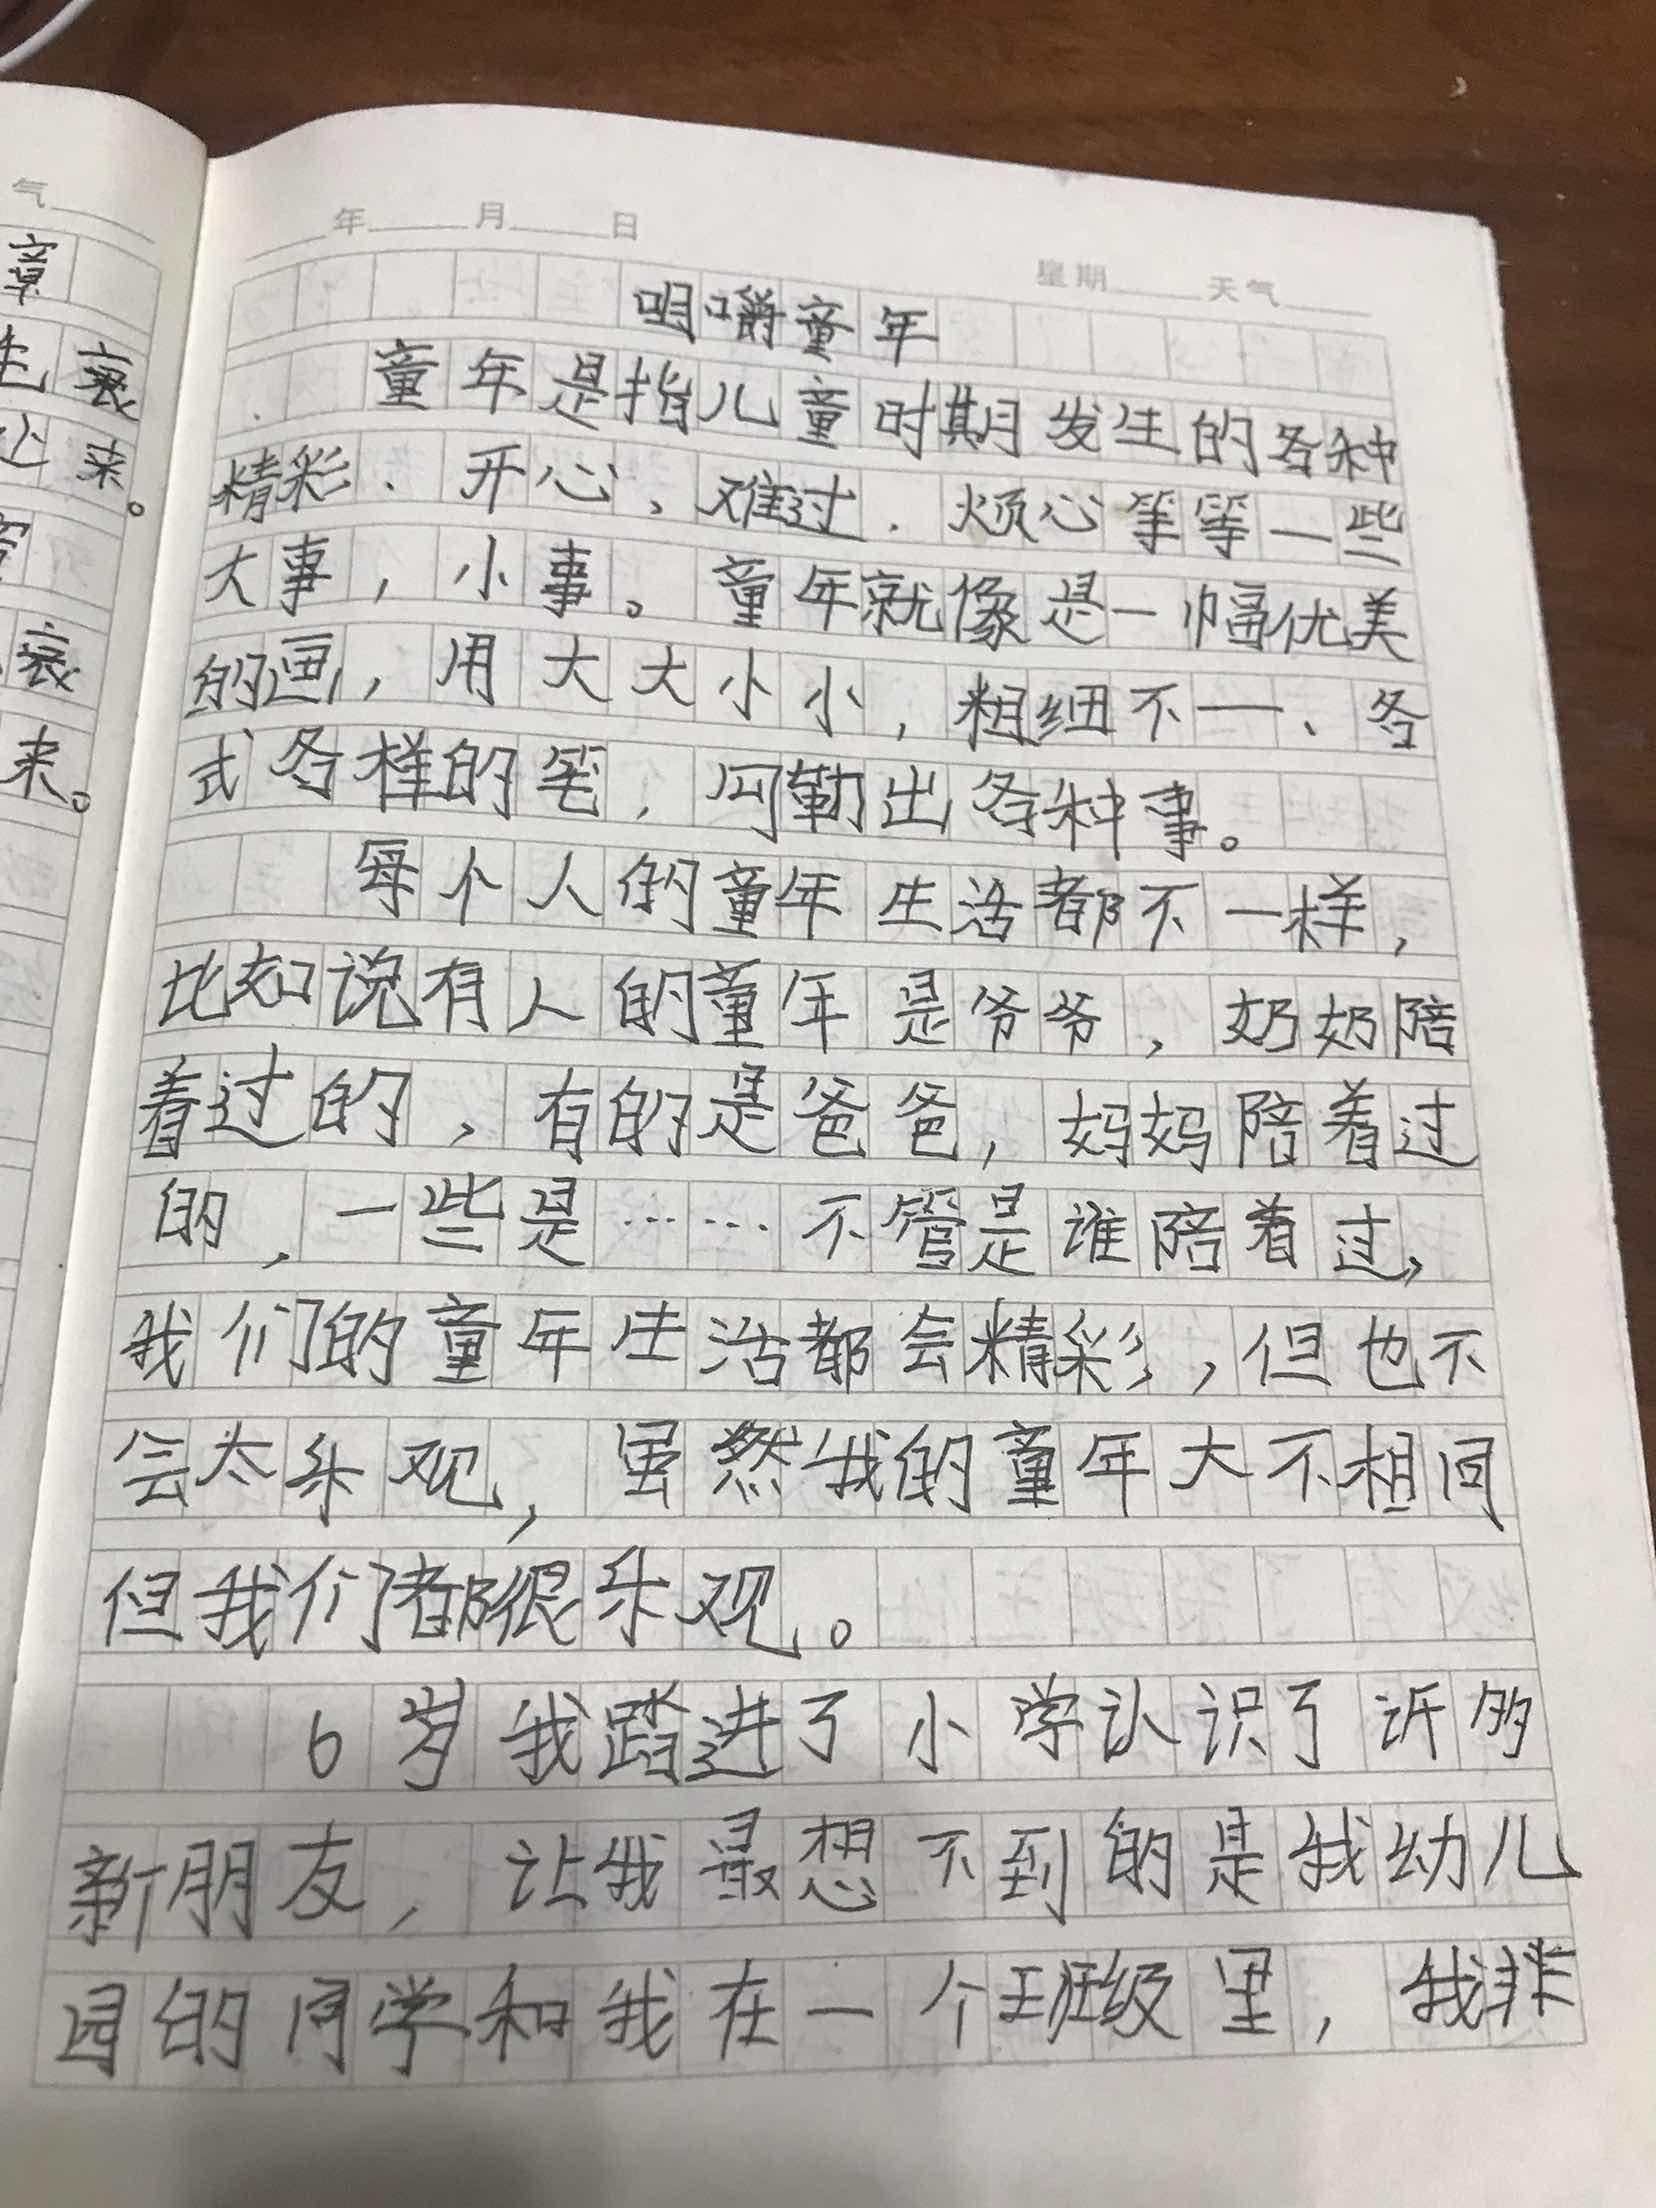 气
章
生衰
来。
衰
来。
年 月 日
星期 天气
咀嚼童年
童年是指儿童时期发生的各种
精彩、开心、难过、烦心等等一些
大事,小事。童年就像是一幅优美
的画,用大大小小,粗细不一、各
式各样的笔,勾勒出各种事。
每个人的童年生活都不一样,
比如说有人的童年是爷爷,奶奶陪
着过的,有的是爸爸,妈妈陪着过
的,一些是……不管是谁陪着过,
我们的童年生活都会精彩,但也不
会太乐观,虽然我的童年大不相同
但我们都很乐观。
6岁我踏进了小学认识了许多
新朋友,让我最想不到的是我幼儿
园的同学和我在一个班级里,我非